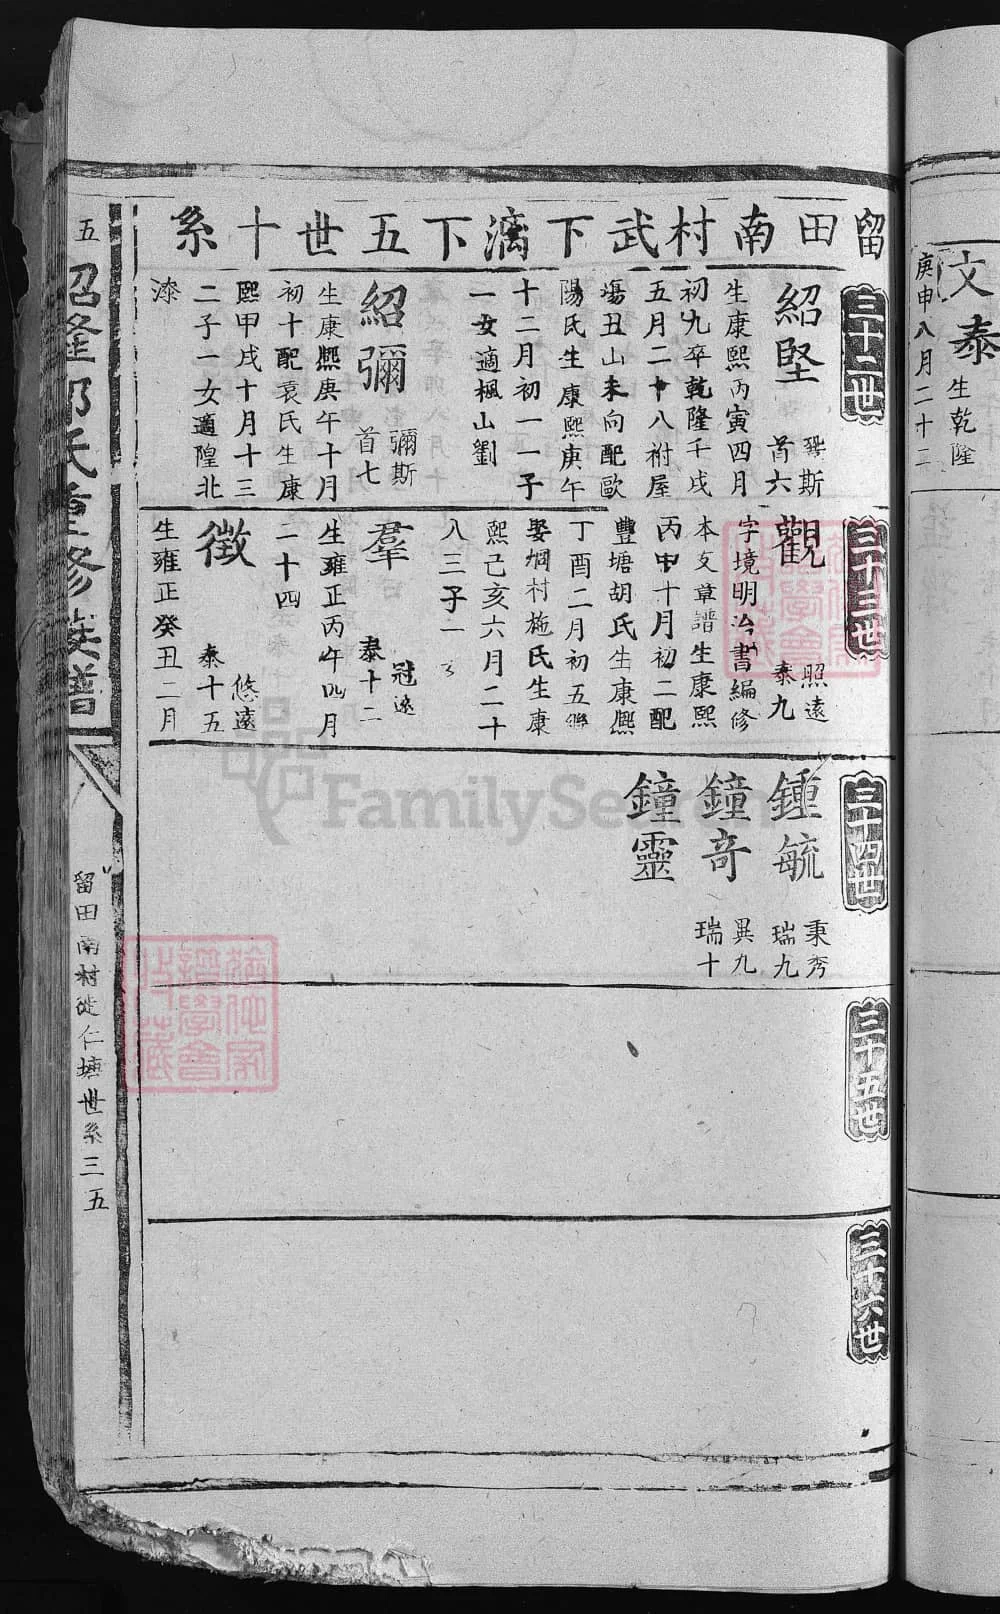 文泰
生乾隆
庚申八月二十二
留田南村武下漓下五世十系
三十二世
紹堅
斯
首六
生康熙丙寅四月
初九卒乾隆壬戌
五月二十八祔屋
塲丑山未向配歐
陽氏生康熙庚午
十二月初一一子
一女適楓山劉
紹彌
彌斯
首七
生康熙庚午十月
初十配袁氏生康
熙甲戌十月十三
二子一女適隍北
漆
三十三世
觀
照遠
泰九
字境明治書編修
本支章譜生康熙
丙申十月初二配
豐塘胡氏生康熙
丁酉二月初五繼
娶塘村施氏生康
熙己亥六月二十
八三子一
羣
冠遠
泰十二
生雍正丙午四月
二十四
徵
悠遠
泰十五
生雍正癸丑二月
三十四世
鍾毓
秉秀
瑞九
鐘奇
異九
瑞十
鐘靈
三十五世
三十六世
五
紹隆鄒氏重修族譜
留田南村徙仁塘世系三五
FamilySearch